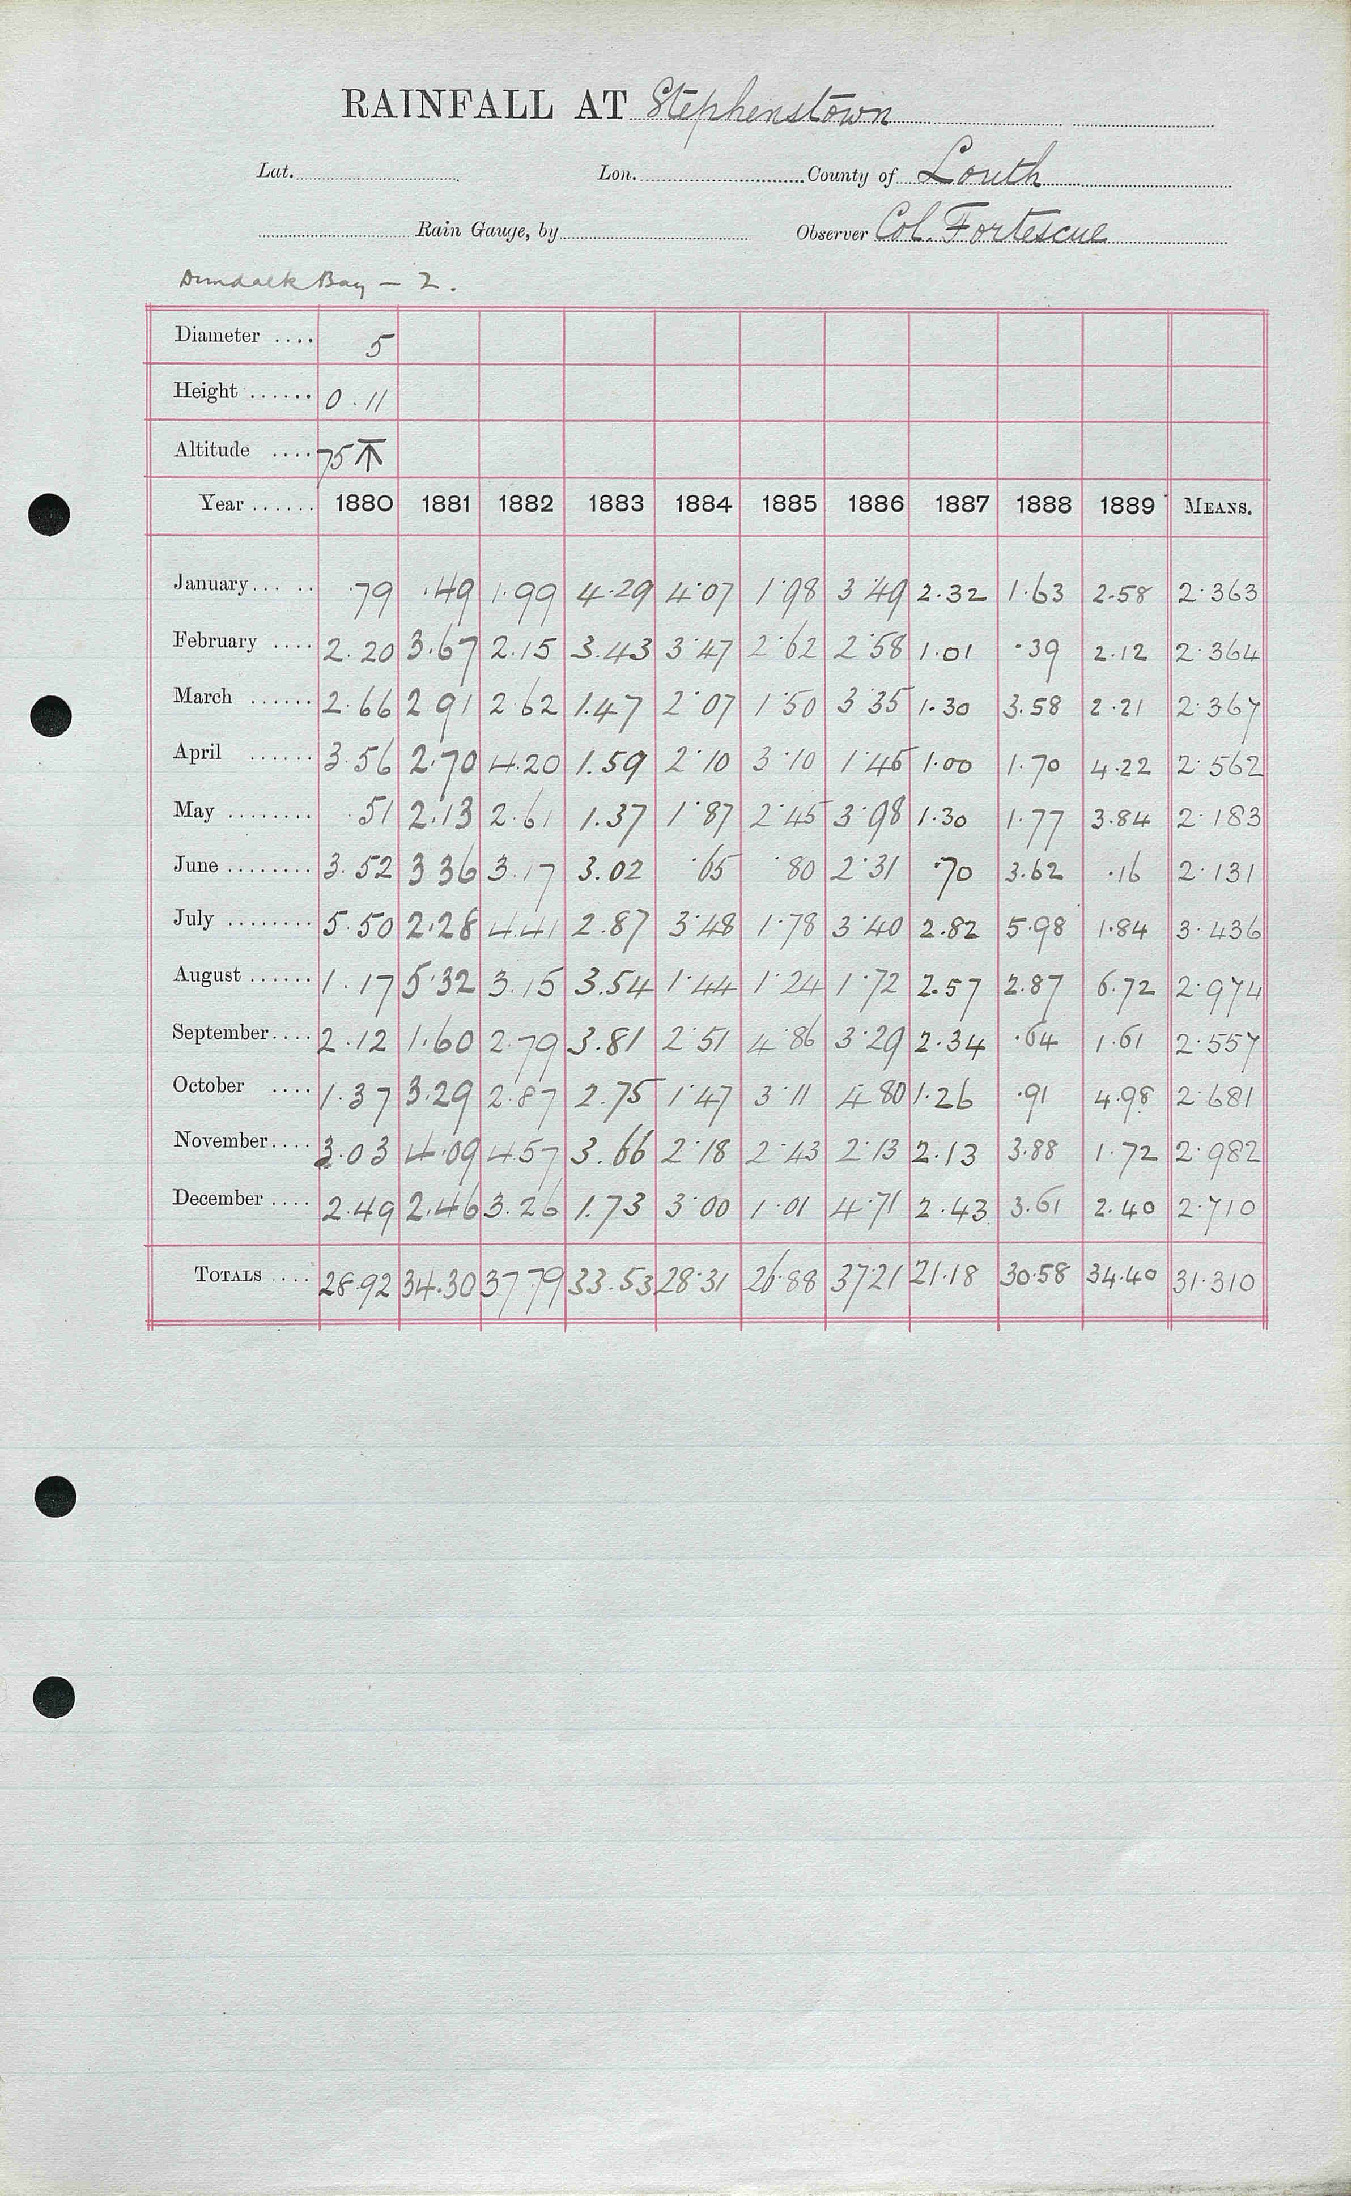 RAINFALL AT Stephenstown
Lat. Lon. County of Louth
Rain Gauge, by Observer Col. Fortescue
Dundalk Bay – 2.
Diameter .... 5
Height ...... 0.11
Altitude .... 75
Year ...... 1880 1881 1882 1883 1884 1885 1886 1887 1888 1889 MEANS.
January... .. .79 .49 1.99 4.29 4.07 1.98 3.49 2.32 1.63 2.58 2.363
February .... 2.20 3.67 2.15 3.43 3.47 2.62 2.58 1.01 .39 2.12 2.364
March ...... 2.66 2 91 2.62 1.47 2.07 1.50 3.35 1.30 3.58 2.21 2.367
April ...... 3.56 2.70 4.20 1.59 2.10 3.10 1.45 1.00 1.70 4.22 2.562
May ........ .51 2.13 2.61 1.37 1.87 2.45 3.98 1.30 1.77 3.84 2.183
June ........ 3.52 3 36 3.17 3.02 .65 .80 2.31 .70 3.62 .16 2.131
July ........ 5.50 2.28 4.41 2.87 3.48 1.78 3.40 2.82 5.98 1.84 3.436
August ...... 1.17 5.32 3.15 3.54 1.44 1.24 1.72 2.57 2.87 6.72 2.974
September.... 2.12 1.60 2.79 3.81 2.51 4.86 3.29 2.34 .64 1.61 2.557
October .... 1.37 3.29 2.87 2.75 1.47 3.11 4.80 1.26 .91 4.98 2.681
November.... 3.03 4.09 4.57 3.66 2.18 2.43 2.13 2.13 3.88 1.72 2.982
December .... 2.49 2.46 3.26 1.73 3.00 1.01 4.71 2.43 3.61 2.40 2.710
TOTALS .... 28.92 34.30 37.79 33.53 28.31 26.88 37.21 21.18 30.58 34.40 31.310